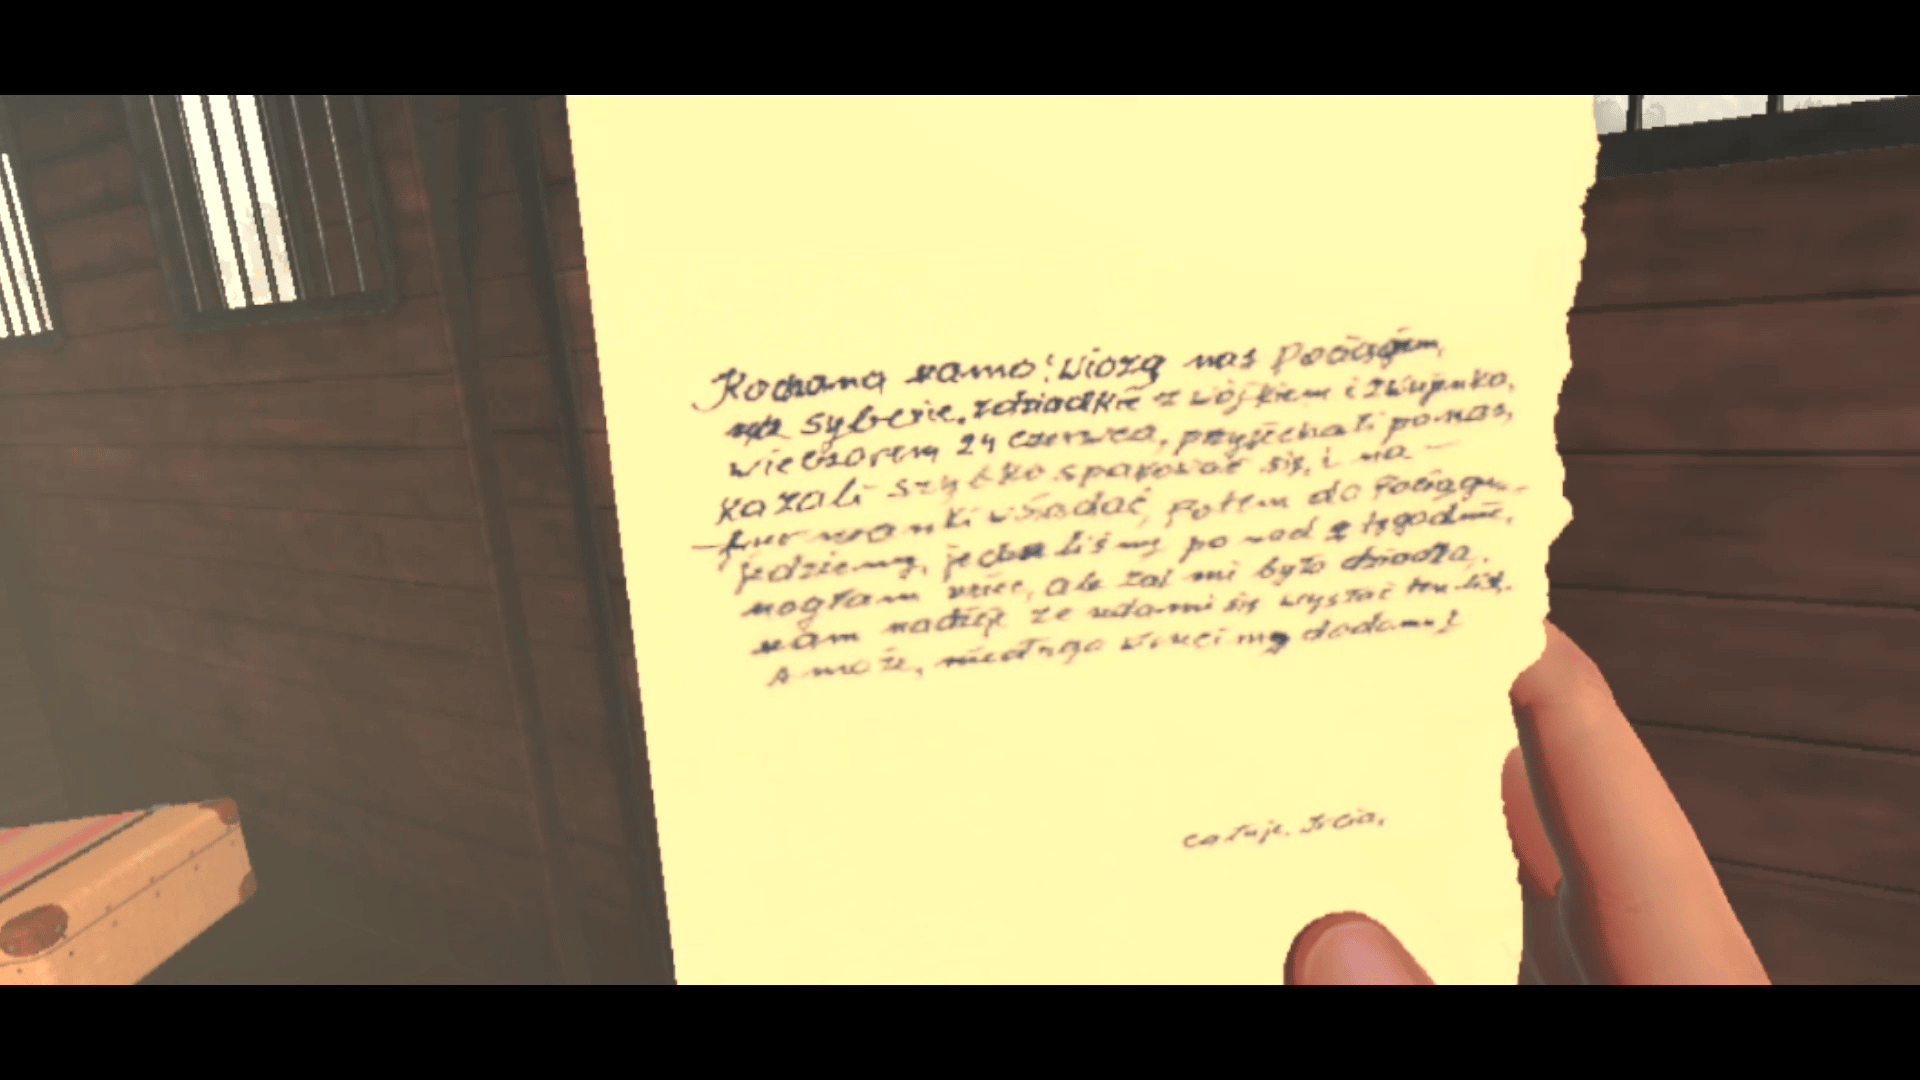 Kochana mamo! Wiozą nas pociągiem,
na syberię, z dziadkie z wójkiem i z wujenką,
wieczorem 24 czerwca, przyjechali po nas,
kazali szybko spakować się, i na
furmanki wsiadać, potem do pociągu.
jedziemy, jechaliśmy ponad 2 tygodnie,
mogłam uciec, ale żal mi było dziadka,
mam nadzieję że uda mi się wysłać ten list.
A może, niedługo wrócimy do domu!
całuję. Ircia,